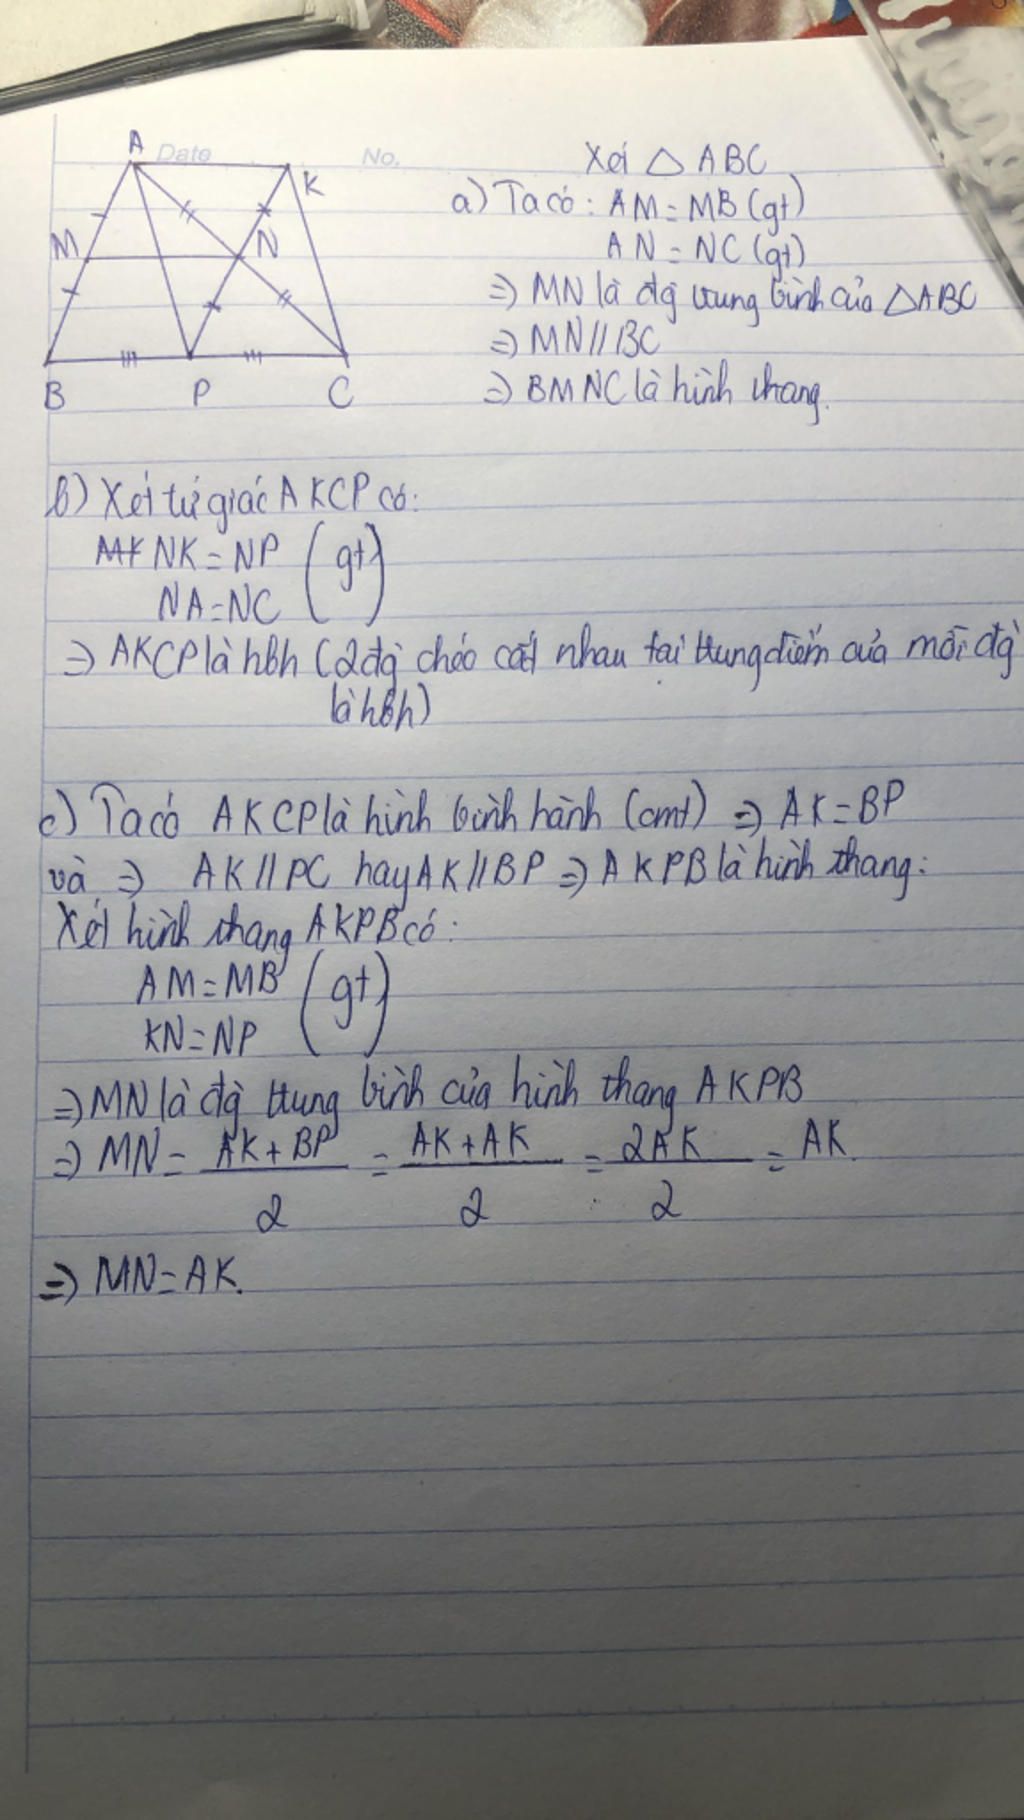 A
Date
No.
K
M
N
B
P
C
Xét △ ABC
a) Ta có: AM = MB (gt)
AN = NC (gt)
=> MN là đg̀ trung bình của △ABC
=> MN // BC
=> BMNC là hình thang.
b) Xét tứ giác AKCP có:
NK = NP (gt)
NA = NC
=> AKCP là hbh (2 đg̀ chéo cắt nhau tại trung điểm của mỗi đg̀
là hbh)
c) Ta có AKCP là hình bình hành (cmt) => AK = BP
và => AK // PC hay AK // BP => AKPB là hình thang.
Xét hình thang AKPB có:
AM = MB (gt)
KN = NP
=> MN là đg̀ trung bình của hình thang AKPB
=> MN = AK + BP / 2 = AK + AK / 2 = 2AK / 2 = AK.
=> MN = AK.